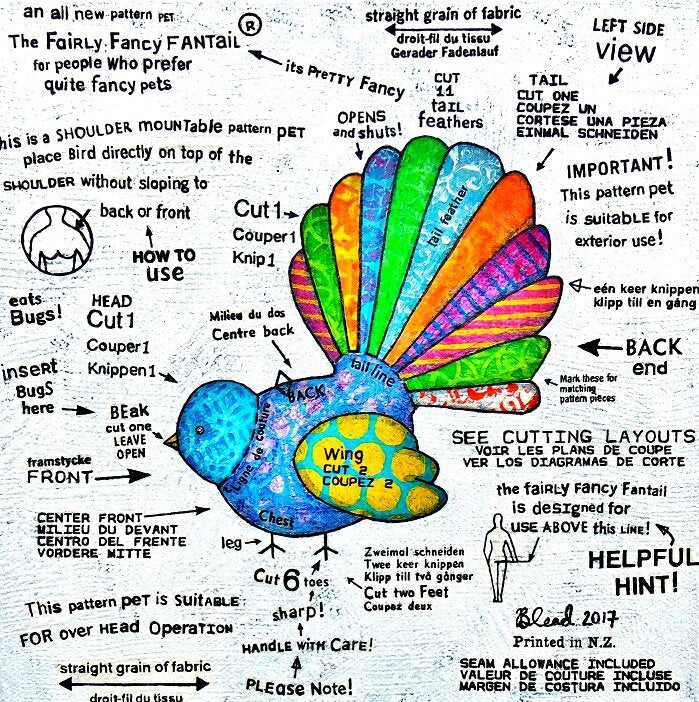 an all new pattern PET
The FAiRLy Fancy FANTAiL
®
for people who prefer
quite fancy pets
its PreTTy Fancy
straight grain of fabric
droit-fil du tissu
Gerader Fadenlauf
LEFT SIDE
view
CUT
11
tail
feathers
TAIL
CUT ONE
COUPEZ UN
CORTESE UNA PIEZA
EINMAL SCHNEIDEN
OPENS
and shuts!
his is a SHOULDER MOUNTable pattern PET
place Bird directly on top of the
SHOULDER without sloping to
back or front
HOW TO
use
IMPORTANT!
This pattern pet
is suitable for
exterior use!
Cut 1
Couper 1
Knip 1
tail feather
eén keer knippen
klipp till en gång
eats
Bugs!
HEAD
Cut 1
Couper 1
Knippen 1
Milieu du dos
Centre back
BACK
end
Mark these for
matching
pattern pieces
insert
BugS
here
BEak
cut one
LEAVE
OPEN
tail line
BACK
Ligne de couture
Wing
CUT 2
COUPEZ 2
Chest
SEE CUTTING LAYOUTS
VOIR LES PLANS DE COUPE
VER LOS DIAGRAMAS DE CORTE
framstycke
FRONT
the fAiRLy Fancy Fantail
is DESIGNED for
USE ABOVE this LINE!
CENTER FRONT
MILIEU DU DEVANT
CENTRO DEL FRENTE
VORDERE MITTE
leg
Cut 6 toes
sharp!
HANDLE WITH CaRe!
PLEase Note!
Zweimal schneiden
Twee keer knippen
Klipp till två gånger
Cut two Feet
Coupez deux
HELPFUL
HINT!
This pattern pet is SuiTABLE
FOR over HEAD OperATION
Blead 2017
Printed in N.Z.
straight grain of fabric
droit-fil du tissu
SEAM ALLOWANCE INCLUDED
VALEUR DE COUTURE INCLUSE
MARGEN DE COSTURA INCLUIDO